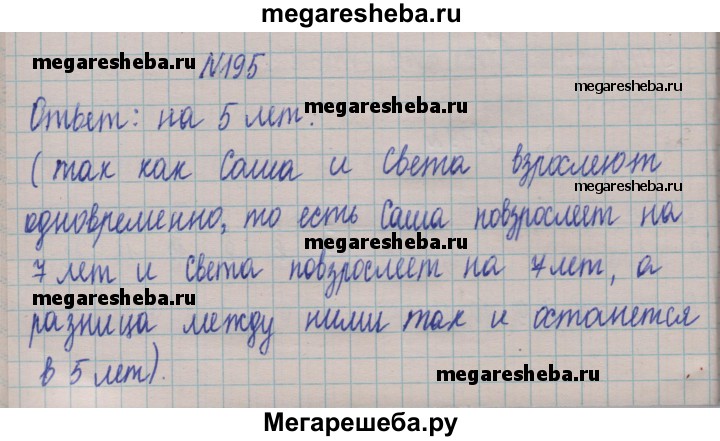 megaresheba.ru
megaresheba.ru
N195
megaresheba.ru
Ответ: на 5 лет.
megaresheba.ru
(так как Саша и Света взрослеют
megaresheba.ru
одновременно, то есть Саша повзрослеет на
7 лет и Света повзрослеет на 7 лет, а
megaresheba.ru
разница между ними так и останется
в 5 лет).
megaresheba.ru
Мегарешеба.ру